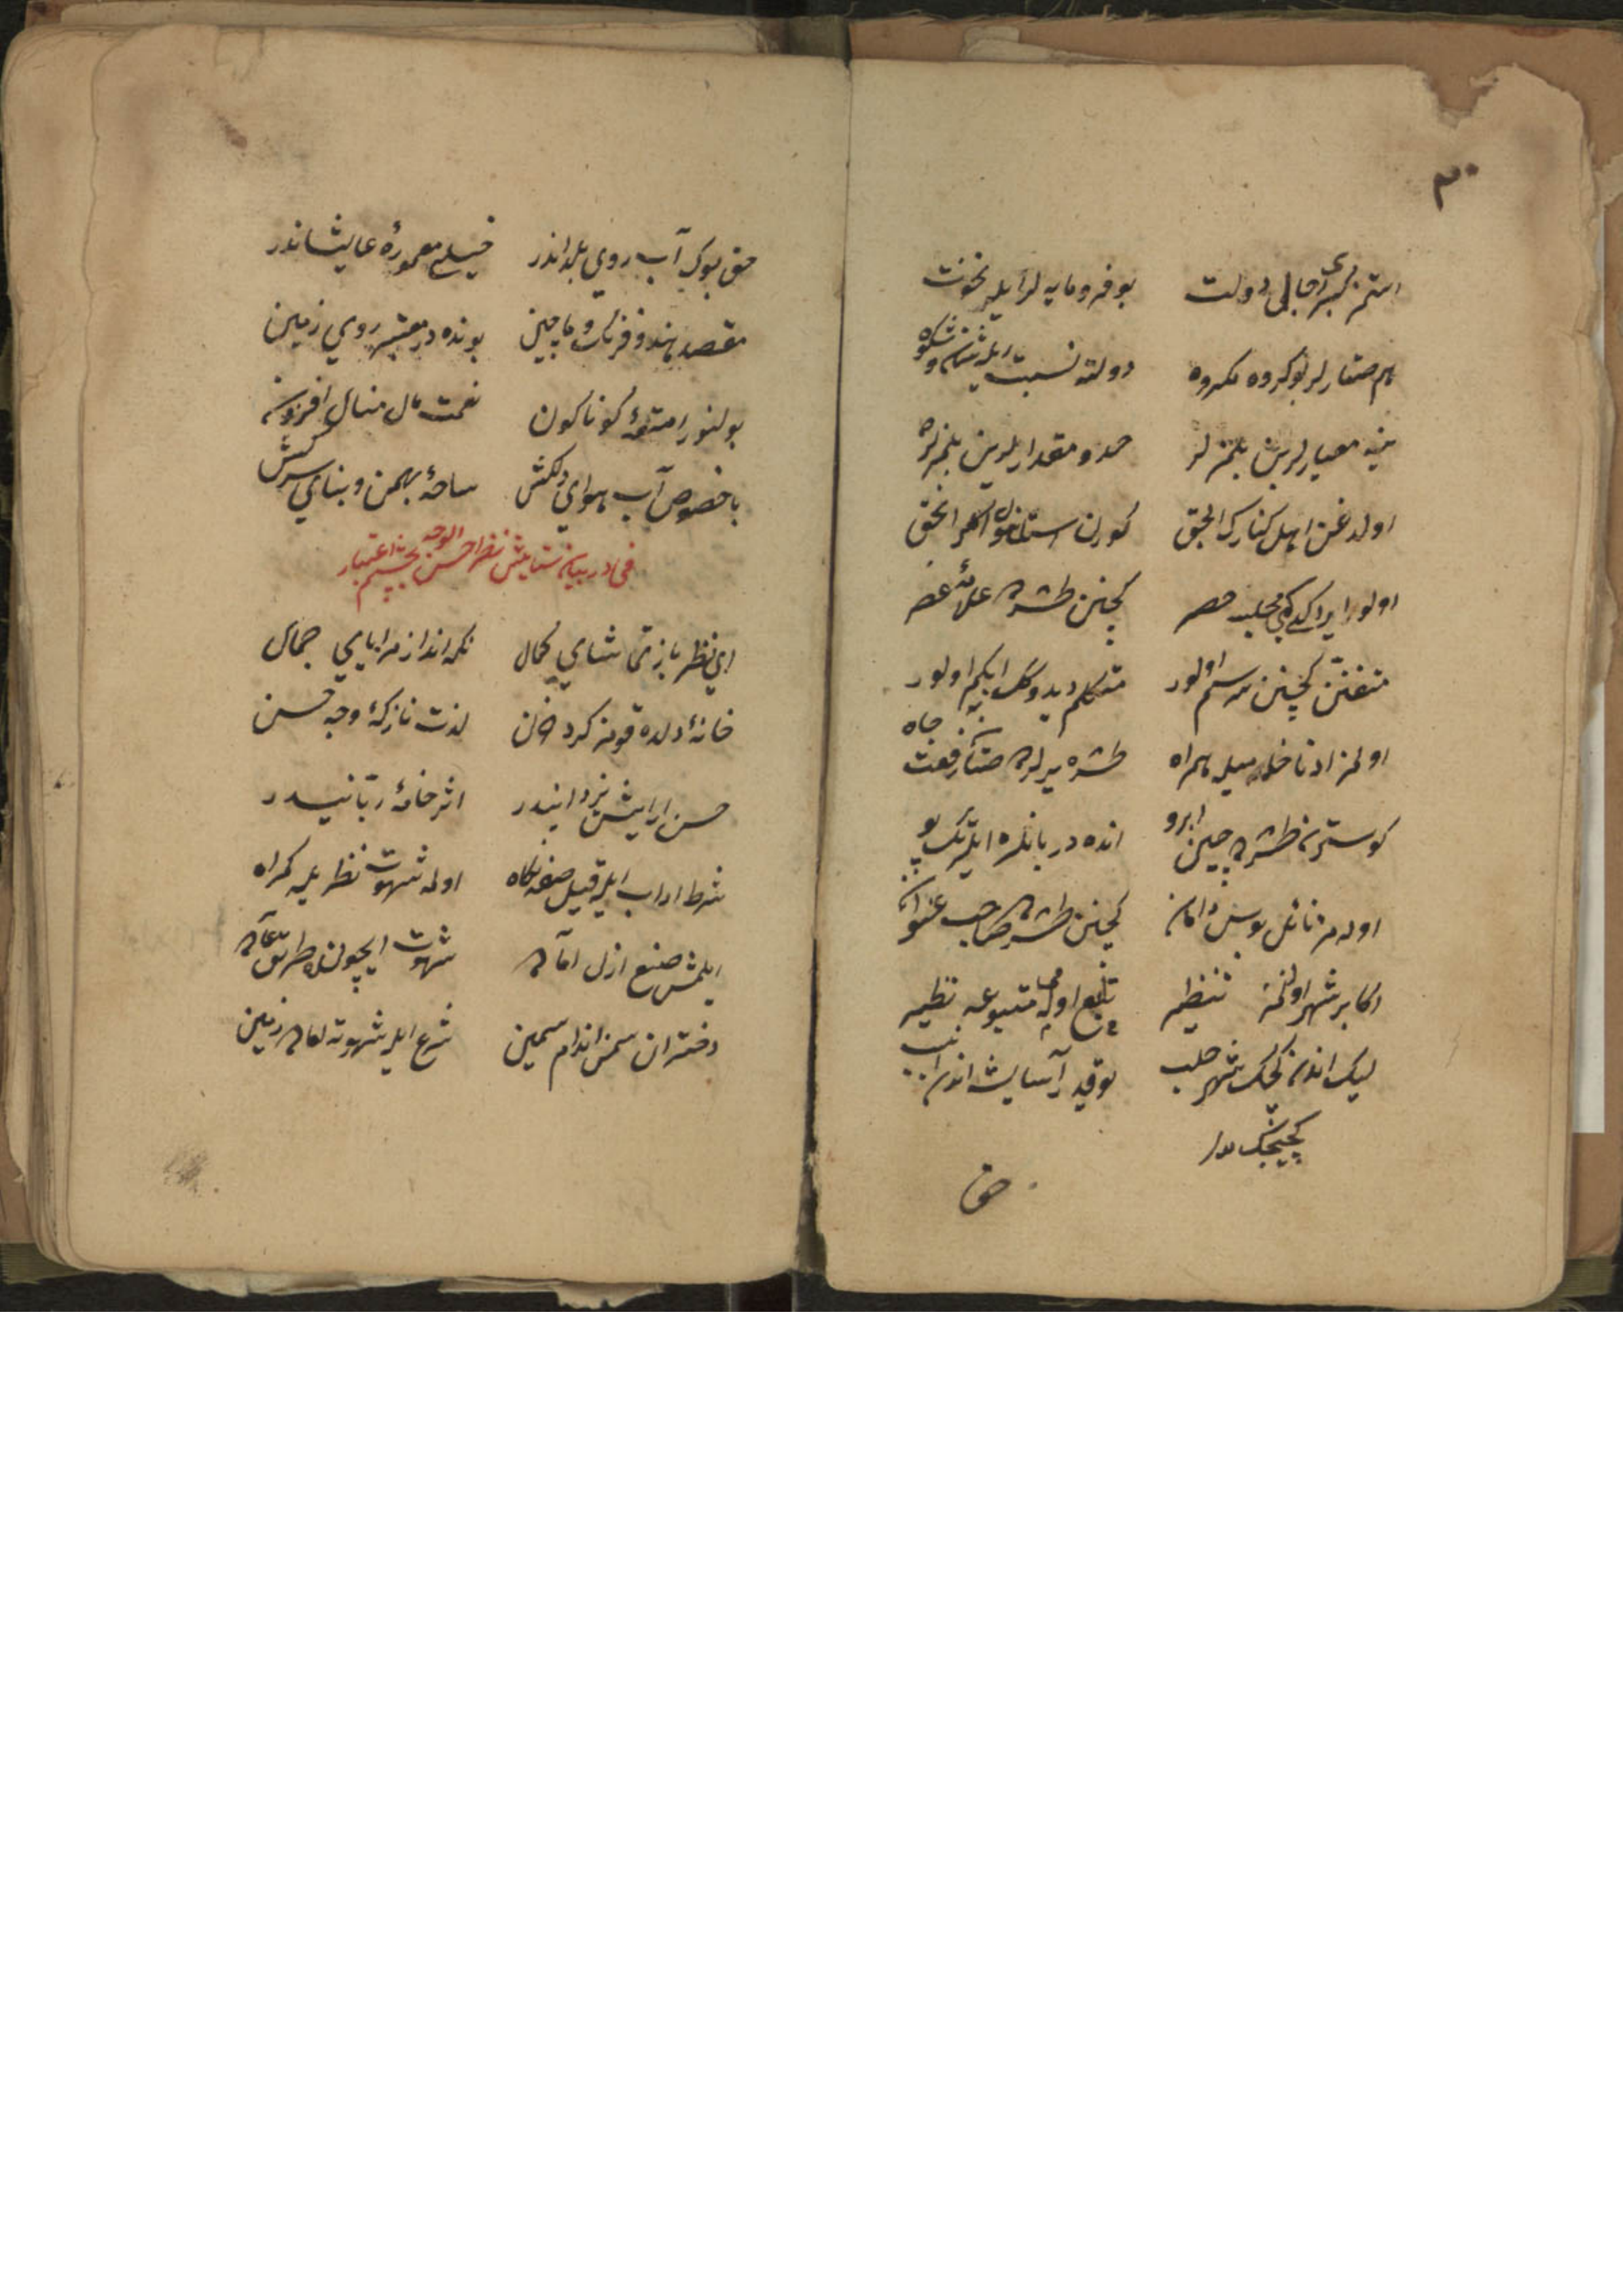 ٣٠
استمز كبرى رجال دولت بو فرومايه لر ايلر نخوت
هم صغارلر بو كروه مكروه دولته نسبت ايله شان و شكوه
ينه معيارلرين بلمزلر حد و مقدارلرين بلمزلر
اولدغن اهل كنارك الحق كورن استانبولى اكلر الحق
اولور ايراكله كبى مجلسه حصر كچنن طشره ده علامهٔ عصر
متفنن كچنن سرسم اولور متكلم ديدوكك ابكم اولور
اولمز ادنا خدمه‌يله همراه طشره يرلرده صتان رفعت جاه
كوسترن طشره ده چين ابرو انده دربانلره ايلر تك و پو
اوله مز نائل بوس دامان كچنن طشره ده صاحب عنوان
اكابر شهر اولنمز تنظيم تابع اوله متبوعه نظير
ليك اندن كچك شهر حلب يوقدر آسايشه اندن انسب
كچيجك در
حق
حق بو كه آب روى بلداندر خيلى معمورهٔ عاليشاندر
مقصد هند و فرنك و ماچين بونده در معتبر روى زمين
بولنور امتعهٔ كوناكون نعمت مال منال افزون
باخصوص آب هواى دلكش ساحهٔ بهمن و بناى سركش
فى در بيان ستايش نظر احسن الوجه بچشم اعتبار
اى نظر باز تماشاى كمال نكه انداز مراياى جمال
خانهٔ دلده قومز كرد حزن لذت نازكهٔ وجه حسن
حسن ارايش يزدانيدر اثر خامهٔ ربانيدر
شرط اداب ايله قيل صنعه نكاه اوله شهوت نظريله كمراه
ايلمش صنع ازل اماده شهوت ايچون طريق
دختران سمن اندام سمين شرع ايلر شهوته زمين